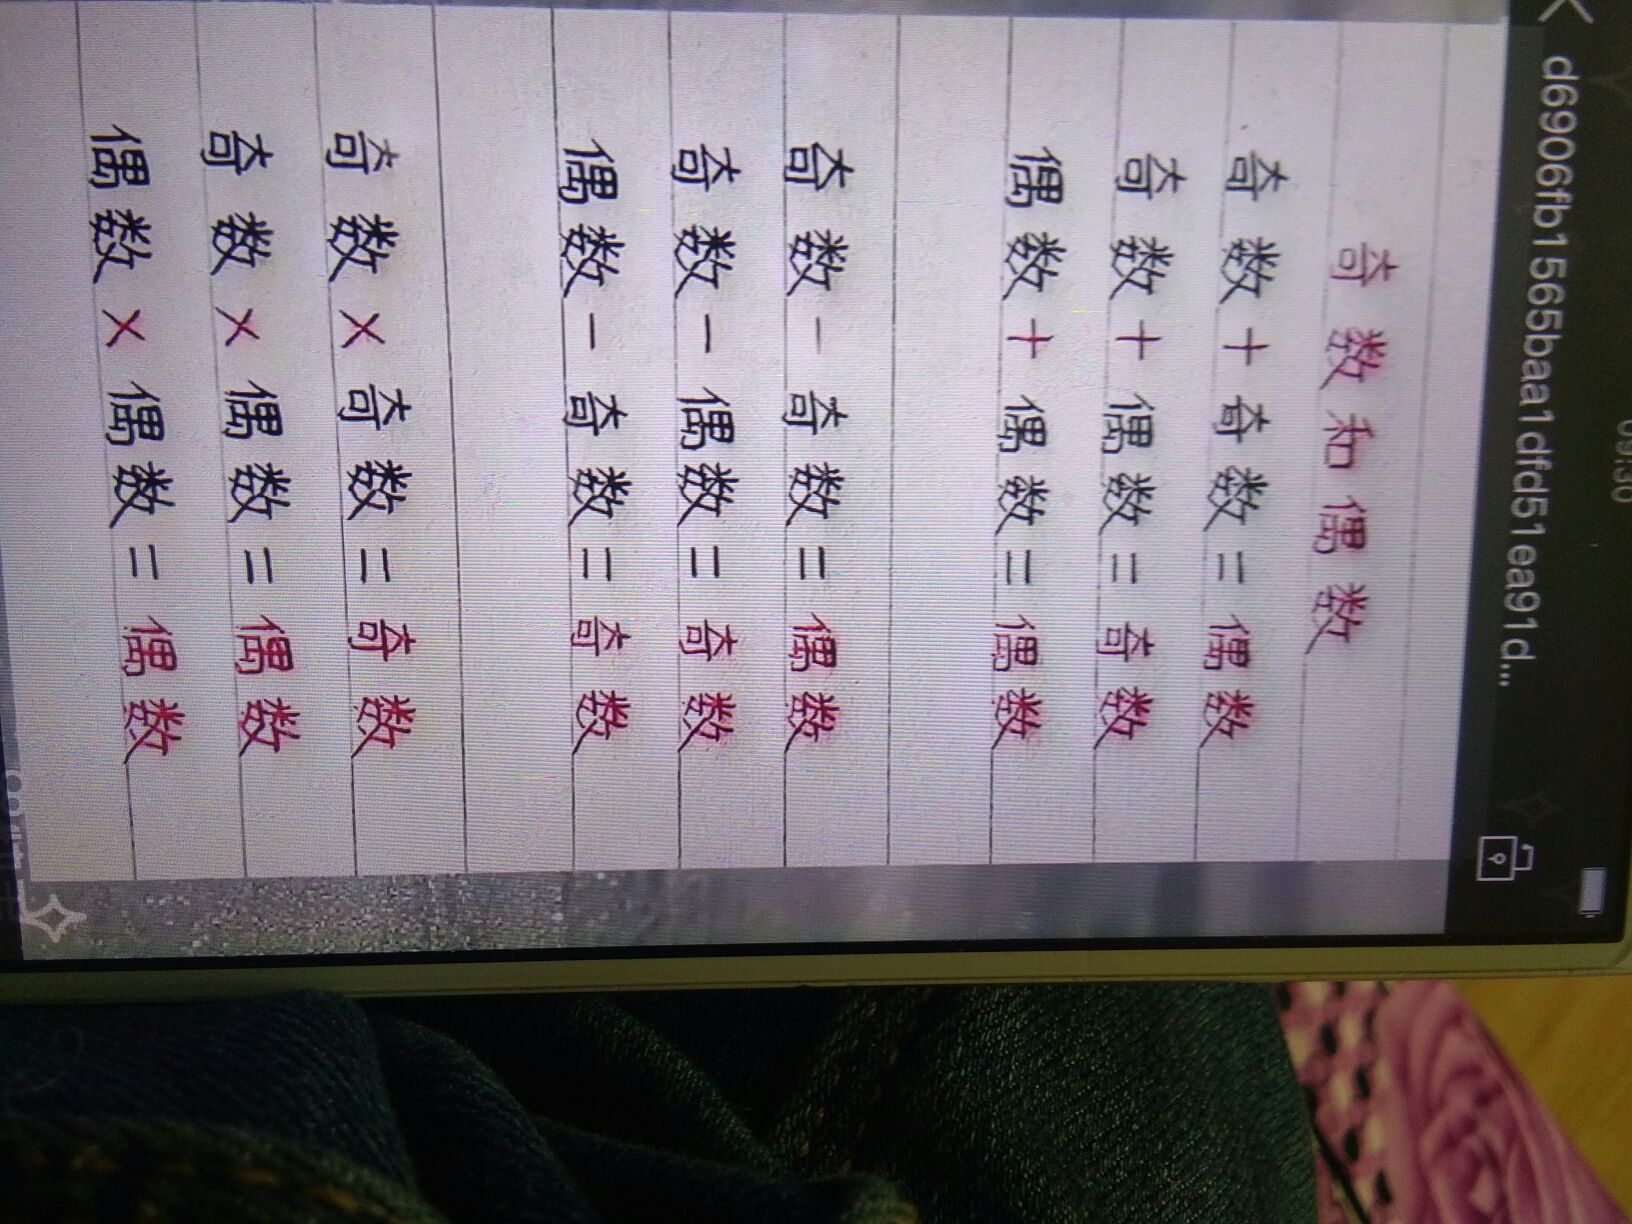 09:30
d6906fb1565baa1dfd51ea91d...
奇数和偶数
奇数+奇数=偶数
奇数+偶数=奇数
偶数+偶数=偶数
奇数-奇数=偶数
奇数-偶数=奇数
偶数-奇数=奇数
奇数×奇数=奇数
奇数×偶数=偶数
偶数×偶数=偶数